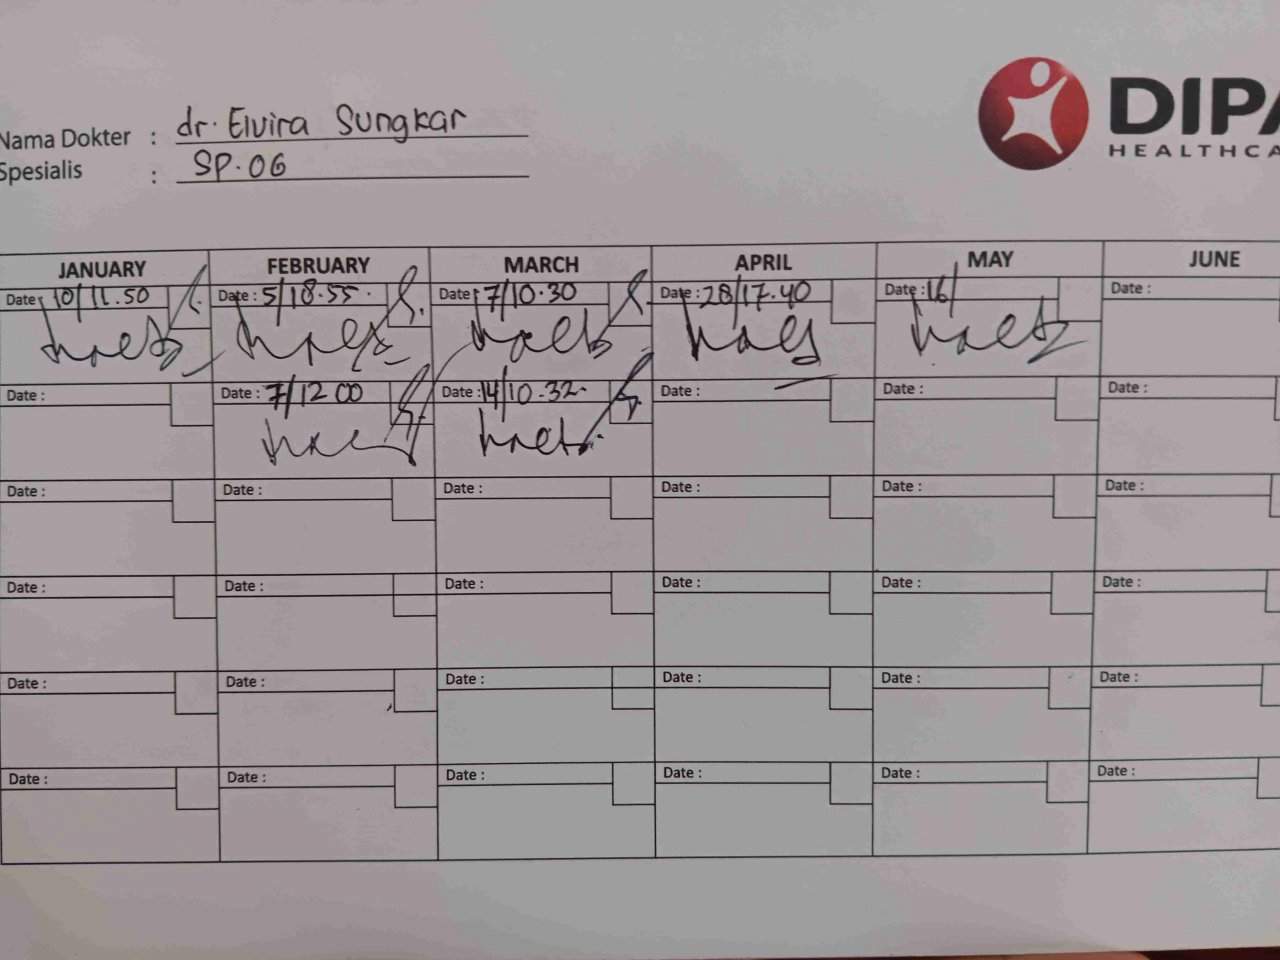 Nama Dokter : dr. Elvira Sungkar
Spesialis : SP.OG
DIPA
HEALTHCA
JANUARY FEBRUARY MARCH APRIL MAY JUNE
Date: 10/11.50 Date : 5/18.55. Date : 7/10.30 Date : 28/17.40 Date : 16/ Date :
Date : Date : 7/12 00 Date : 14/10.32. Date : Date : Date :
Date : Date : Date : Date : Date : Date :
Date : Date : Date : Date : Date : Date :
Date : Date : Date : Date : Date : Date :
Date : Date : Date : Date : Date : Date :